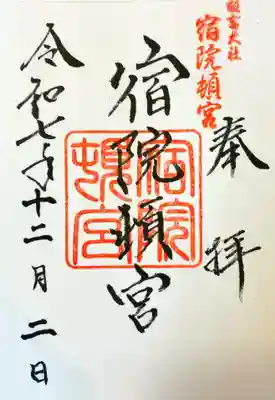 奉拝
住吉大社
宿院頓宮
宿院頓宮
宿院頓宮
令和七年十二月二日